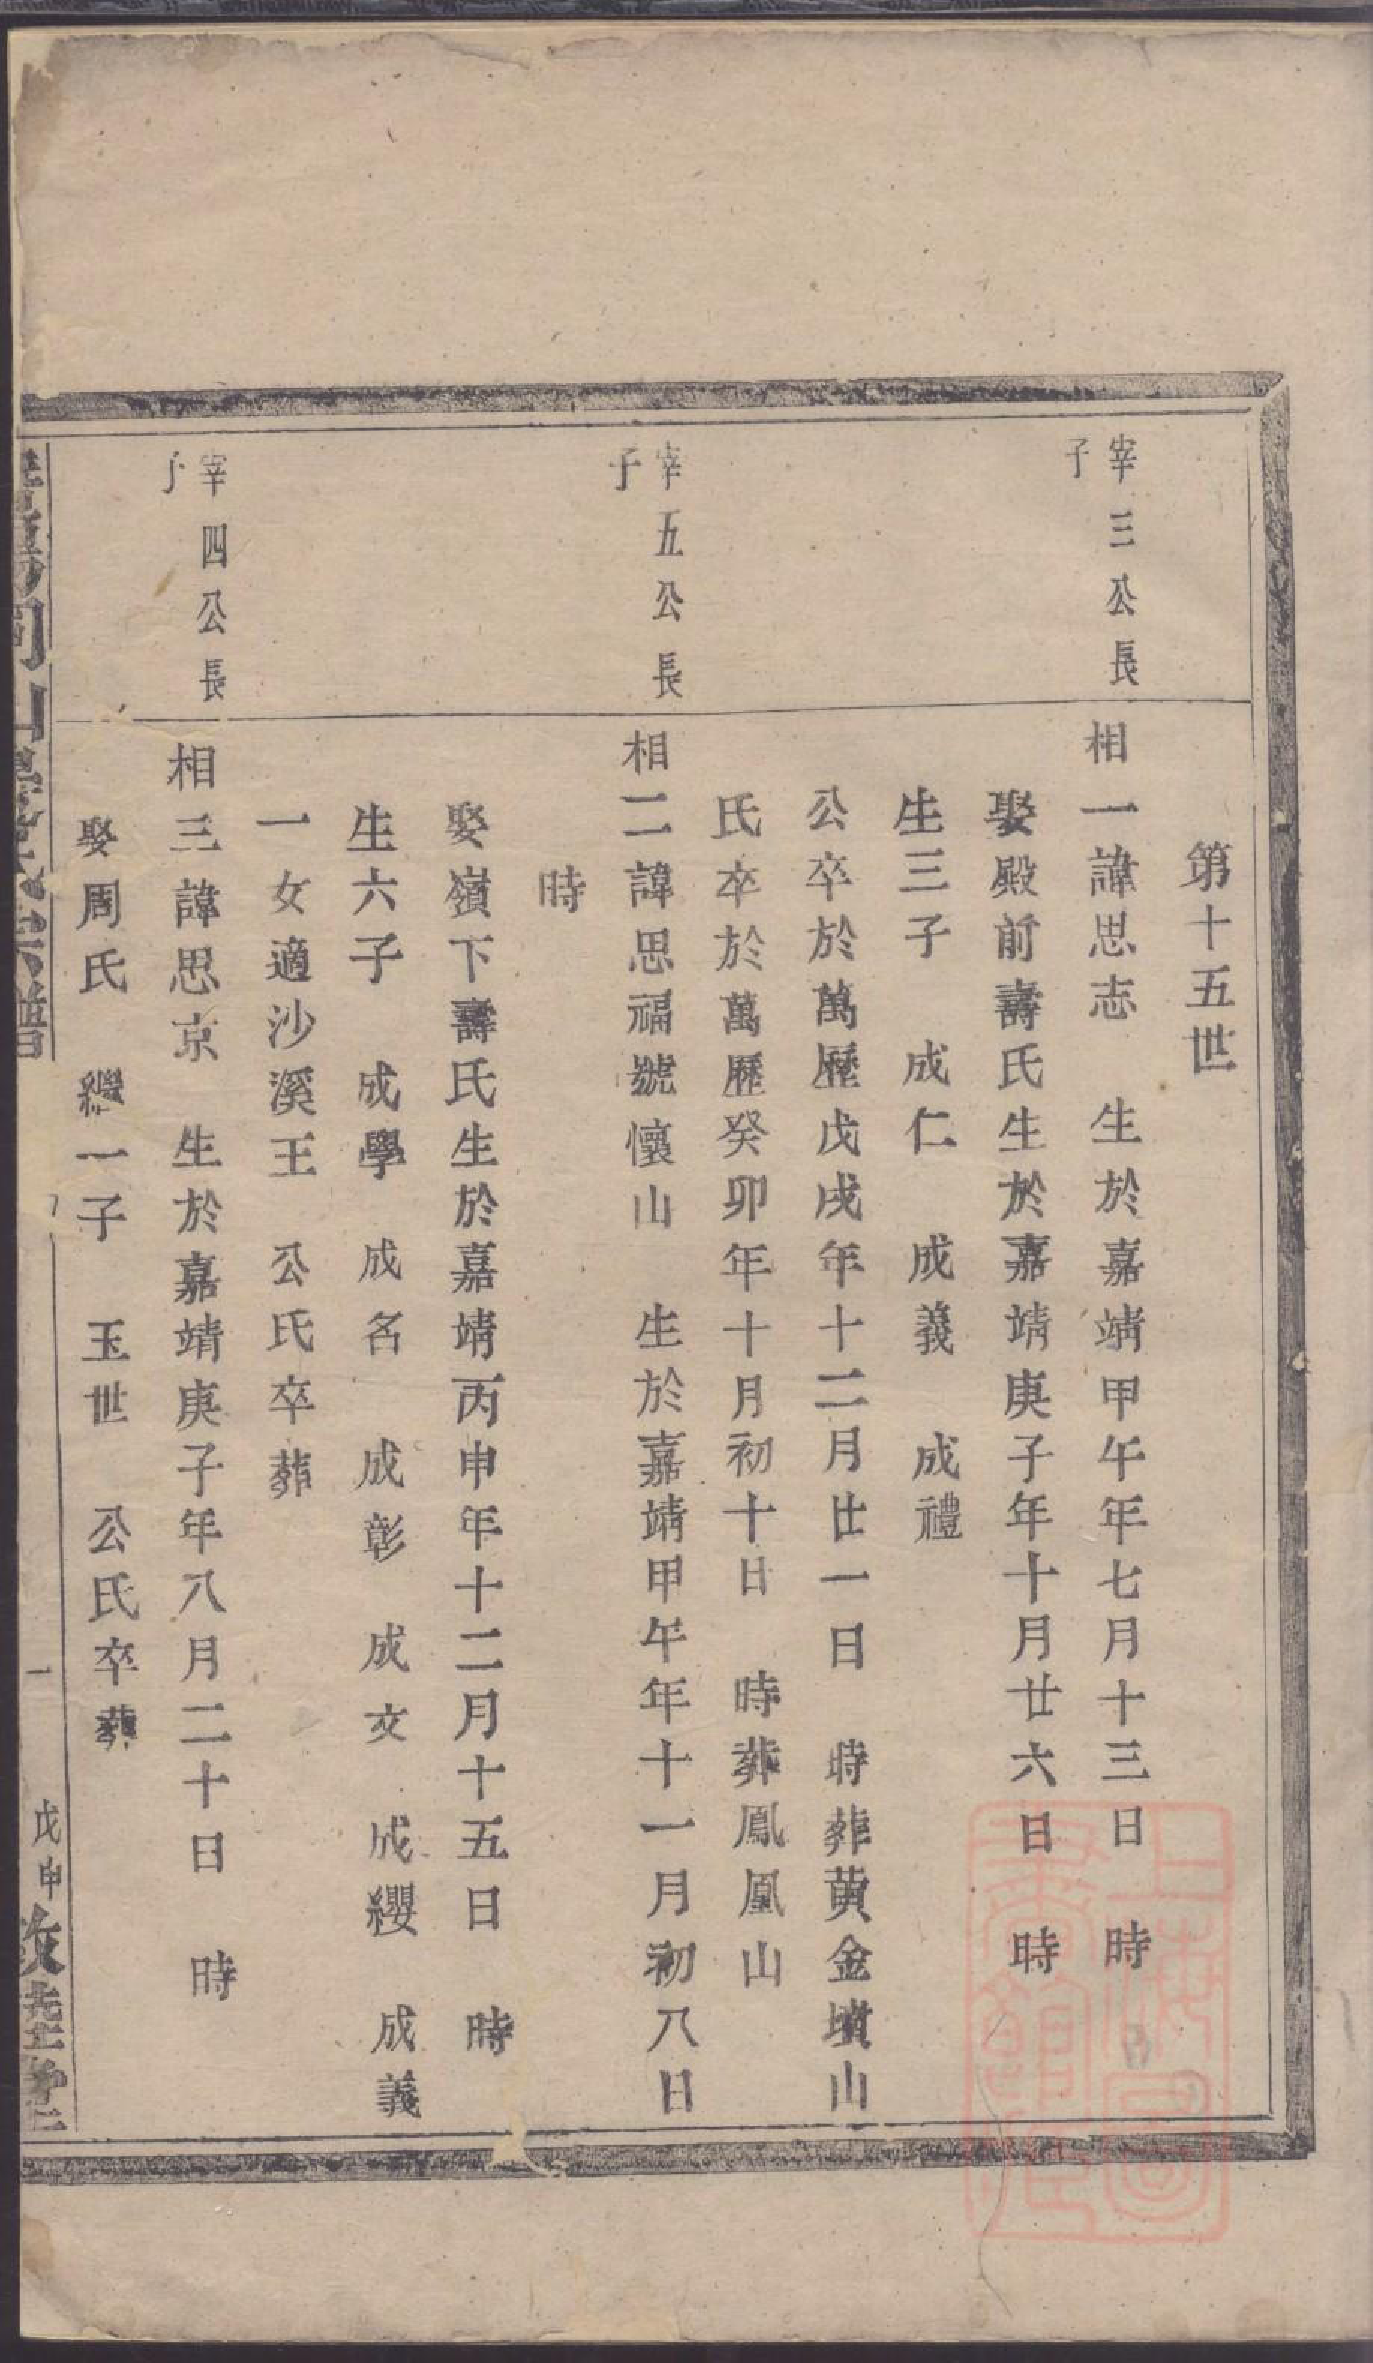 第十五世
宰三公長
子
相一諱思志　生於嘉靖甲午年七月十三日　時
娶殿前壽氏生於嘉靖庚子年十月廿六日　時
生三子　成仁　成義　成禮
公卒於萬歷戊戌年十二月廿一日　時葬黄金墳山
氏卒於萬歷癸卯年十月初十日　時葬鳳凰山
宰五公長
子
相二諱思福號懷山　生於嘉靖甲午年十一月初八日
時
娶嶺下壽氏生於嘉靖丙申年十二月十五日　時
生六子　成學　成名　成彰　成文　成纓　成義
一女適沙溪王　公氏卒葬
宰四公長
子
相三諱思京　生於嘉靖庚子年八月二十日　時
娶周氏　繼一子　玉世　公氏卒葬
山　氏宗譜
一
戊申敦睦堂
上海圖書館藏